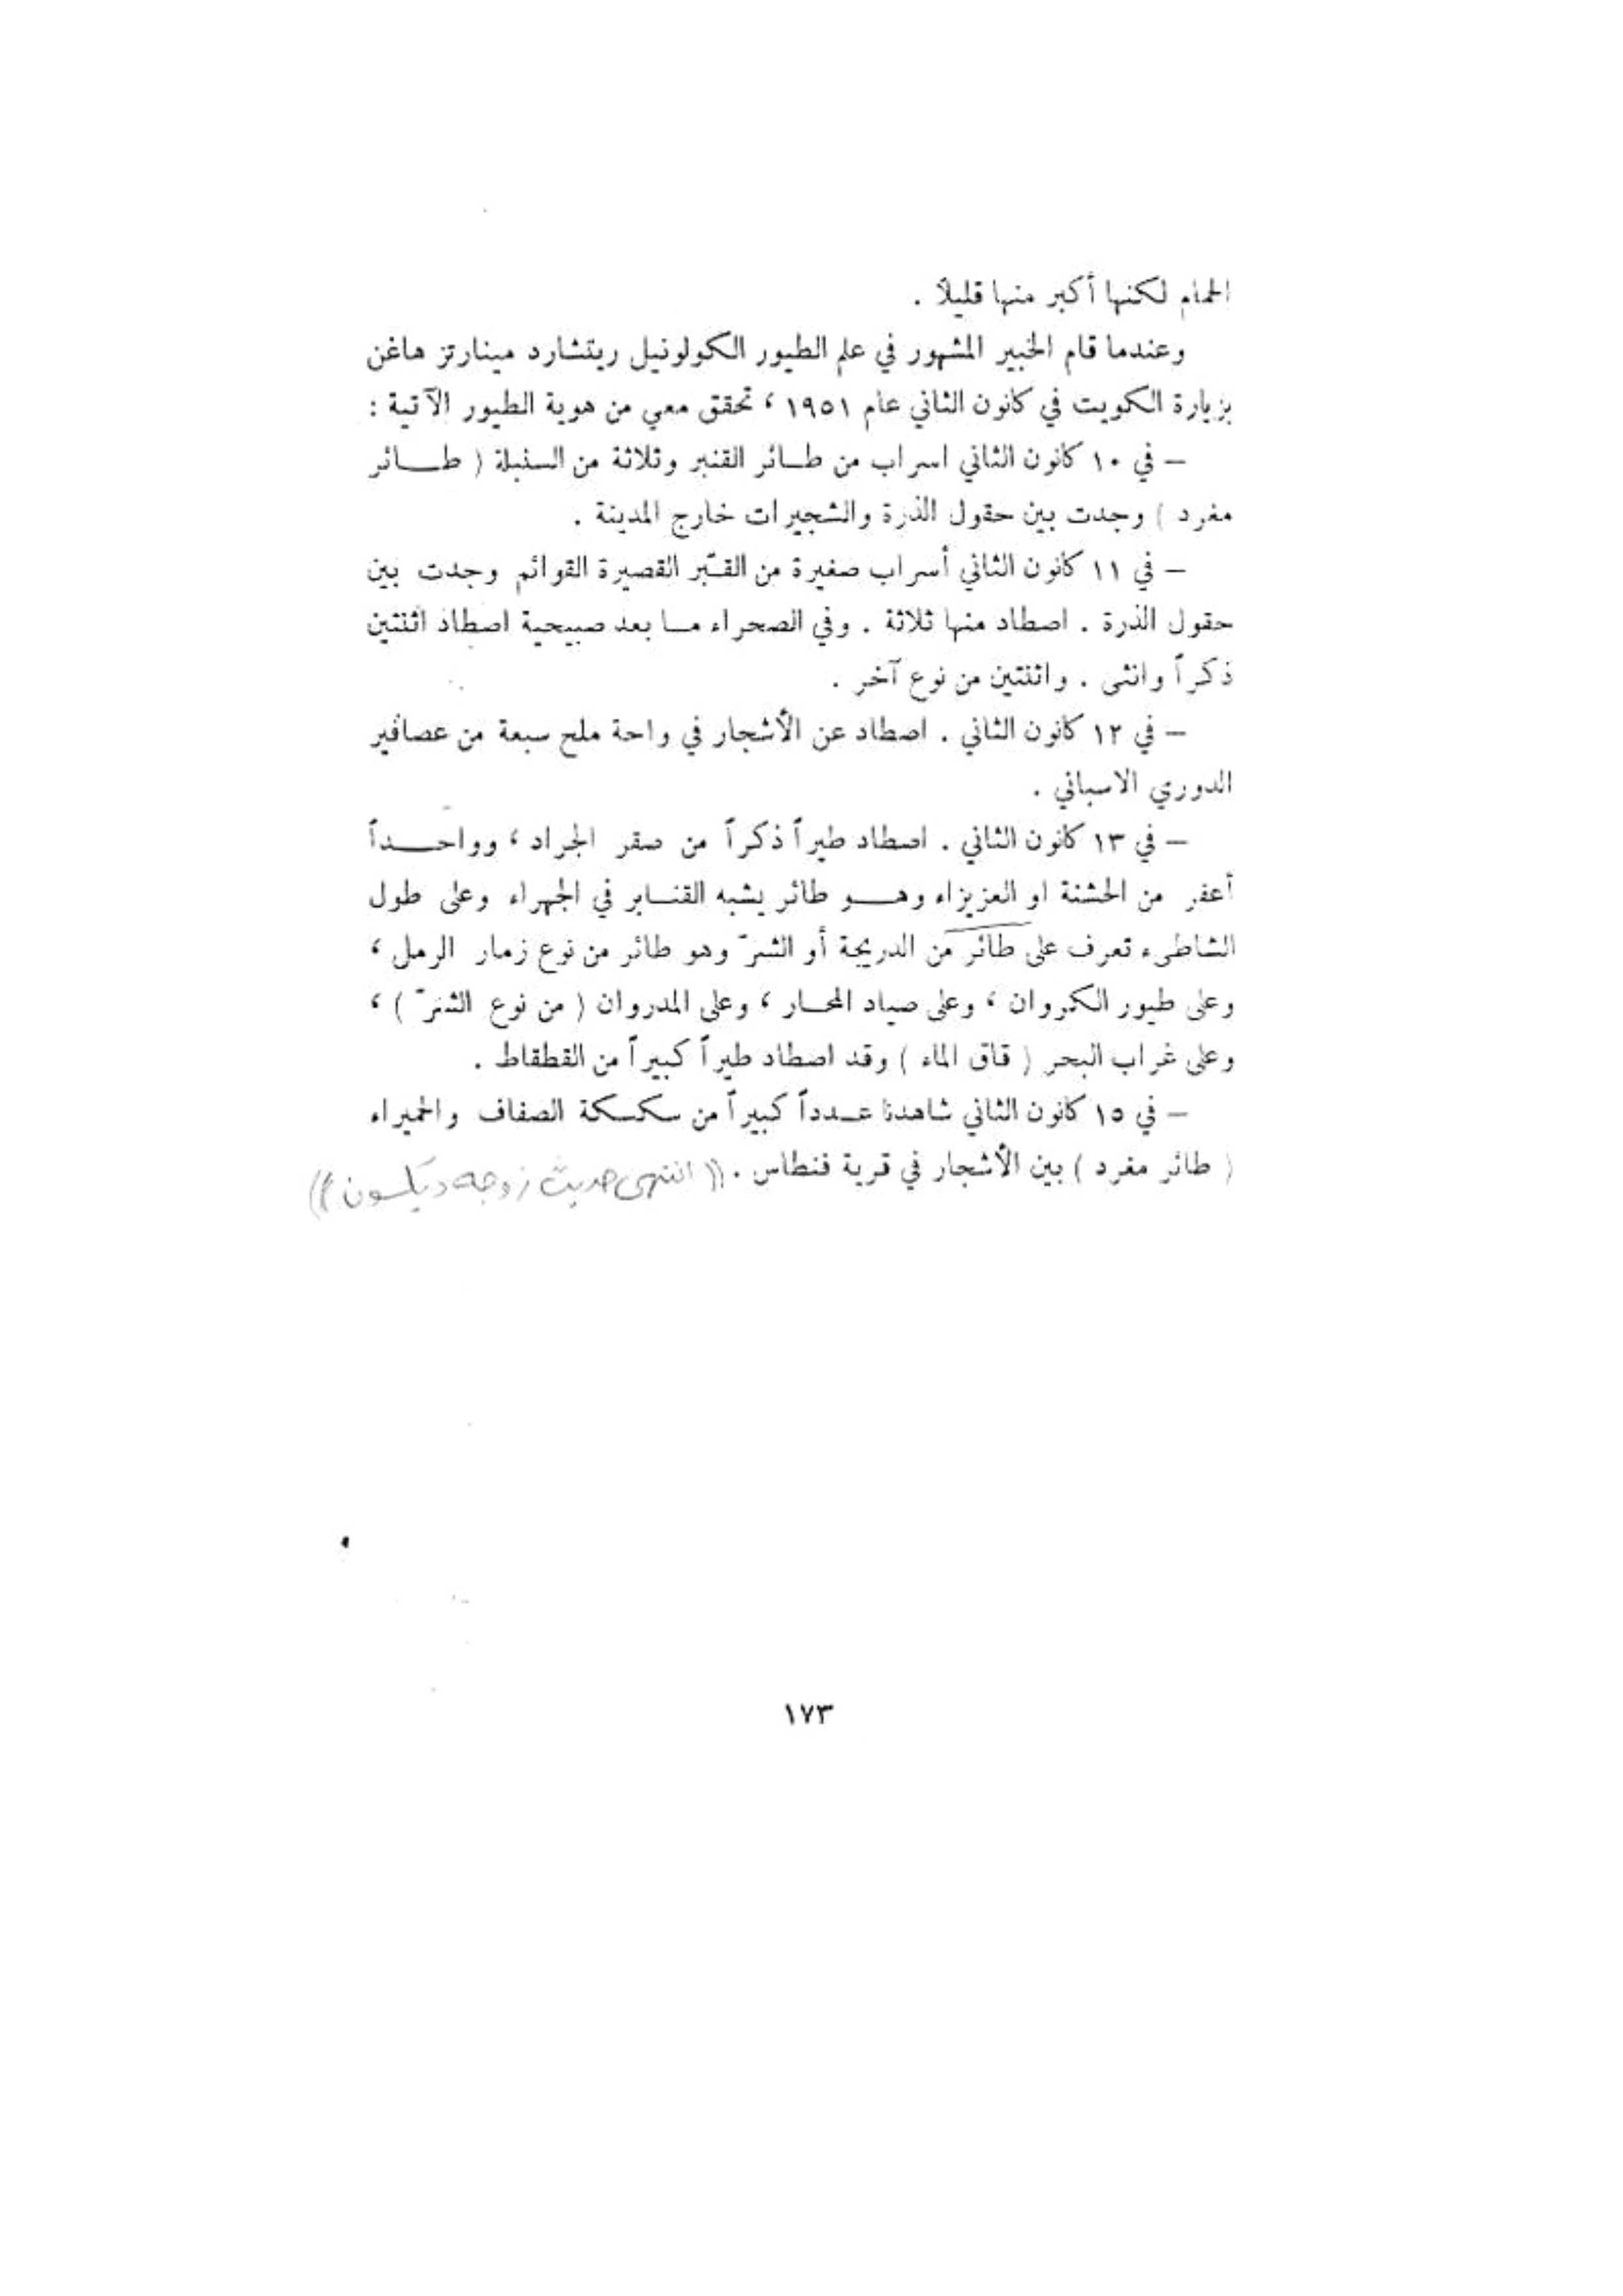 الحمام لكنها أكبر منها قليلاً .
وعندما قام الخبير المشهور في علم الطيور الكولونيل ريتشارد مينارتز هاغن
بزيارة الكويت في كانون الثاني عام ١٩٥١ ، تحقق معي من هوية الطيور الآتية :
– في ١٠ كانون الثاني اسراب من طـائر القنبر وثلاثة من السنبلة ( طـــائر
مغرد ) وجدت بين حقول الذرة والشجيرات خارج المدينة .
– في ١١ كانون الثاني أسراب صغيرة من القبّر القصيرة القوائم وجدت بين
حقول الذرة . اصطاد منها ثلاثة . وفي الصحراء مـا بعد صبيحية اصطاد اثنتين
ذكراً وانثى . واثنتين من نوع آخر .
– في ١٢ كانون الثاني . اصطاد عن الأشجار في واحة ملح سبعة من عصافير
الدوري الاسباني .
– في ١٣ كانون الثاني . اصطاد طيراً ذكراً من صقر الجراد ، وواحـــداً
أعفر من الحشنة او العزيزاء وهـــو طائر يشبه القنـابر في الجهراء وعلى طول
الشاطىء تعرف على طائر من الدريجة أو الشنرّ وهو طائر من نوع زمار الرمل ،
وعلى طيور الكروان ، وعلى صياد المحـار ، وعلى المدروان ( من نوع الشنرّ ) ،
وعلى غراب البحر ( قاق الماء ) وقد اصطاد طيراً كبيراً من القطقاط .
– في ١٥ كانون الثاني شاهدنا عـدداً كبيراً من سكسكة الصفاف والحميراء
( طائر مغرد ) بين الأشجار في قرية فنطاس . (( انتهى حديث زوجه ديكسون ))
١٧٣